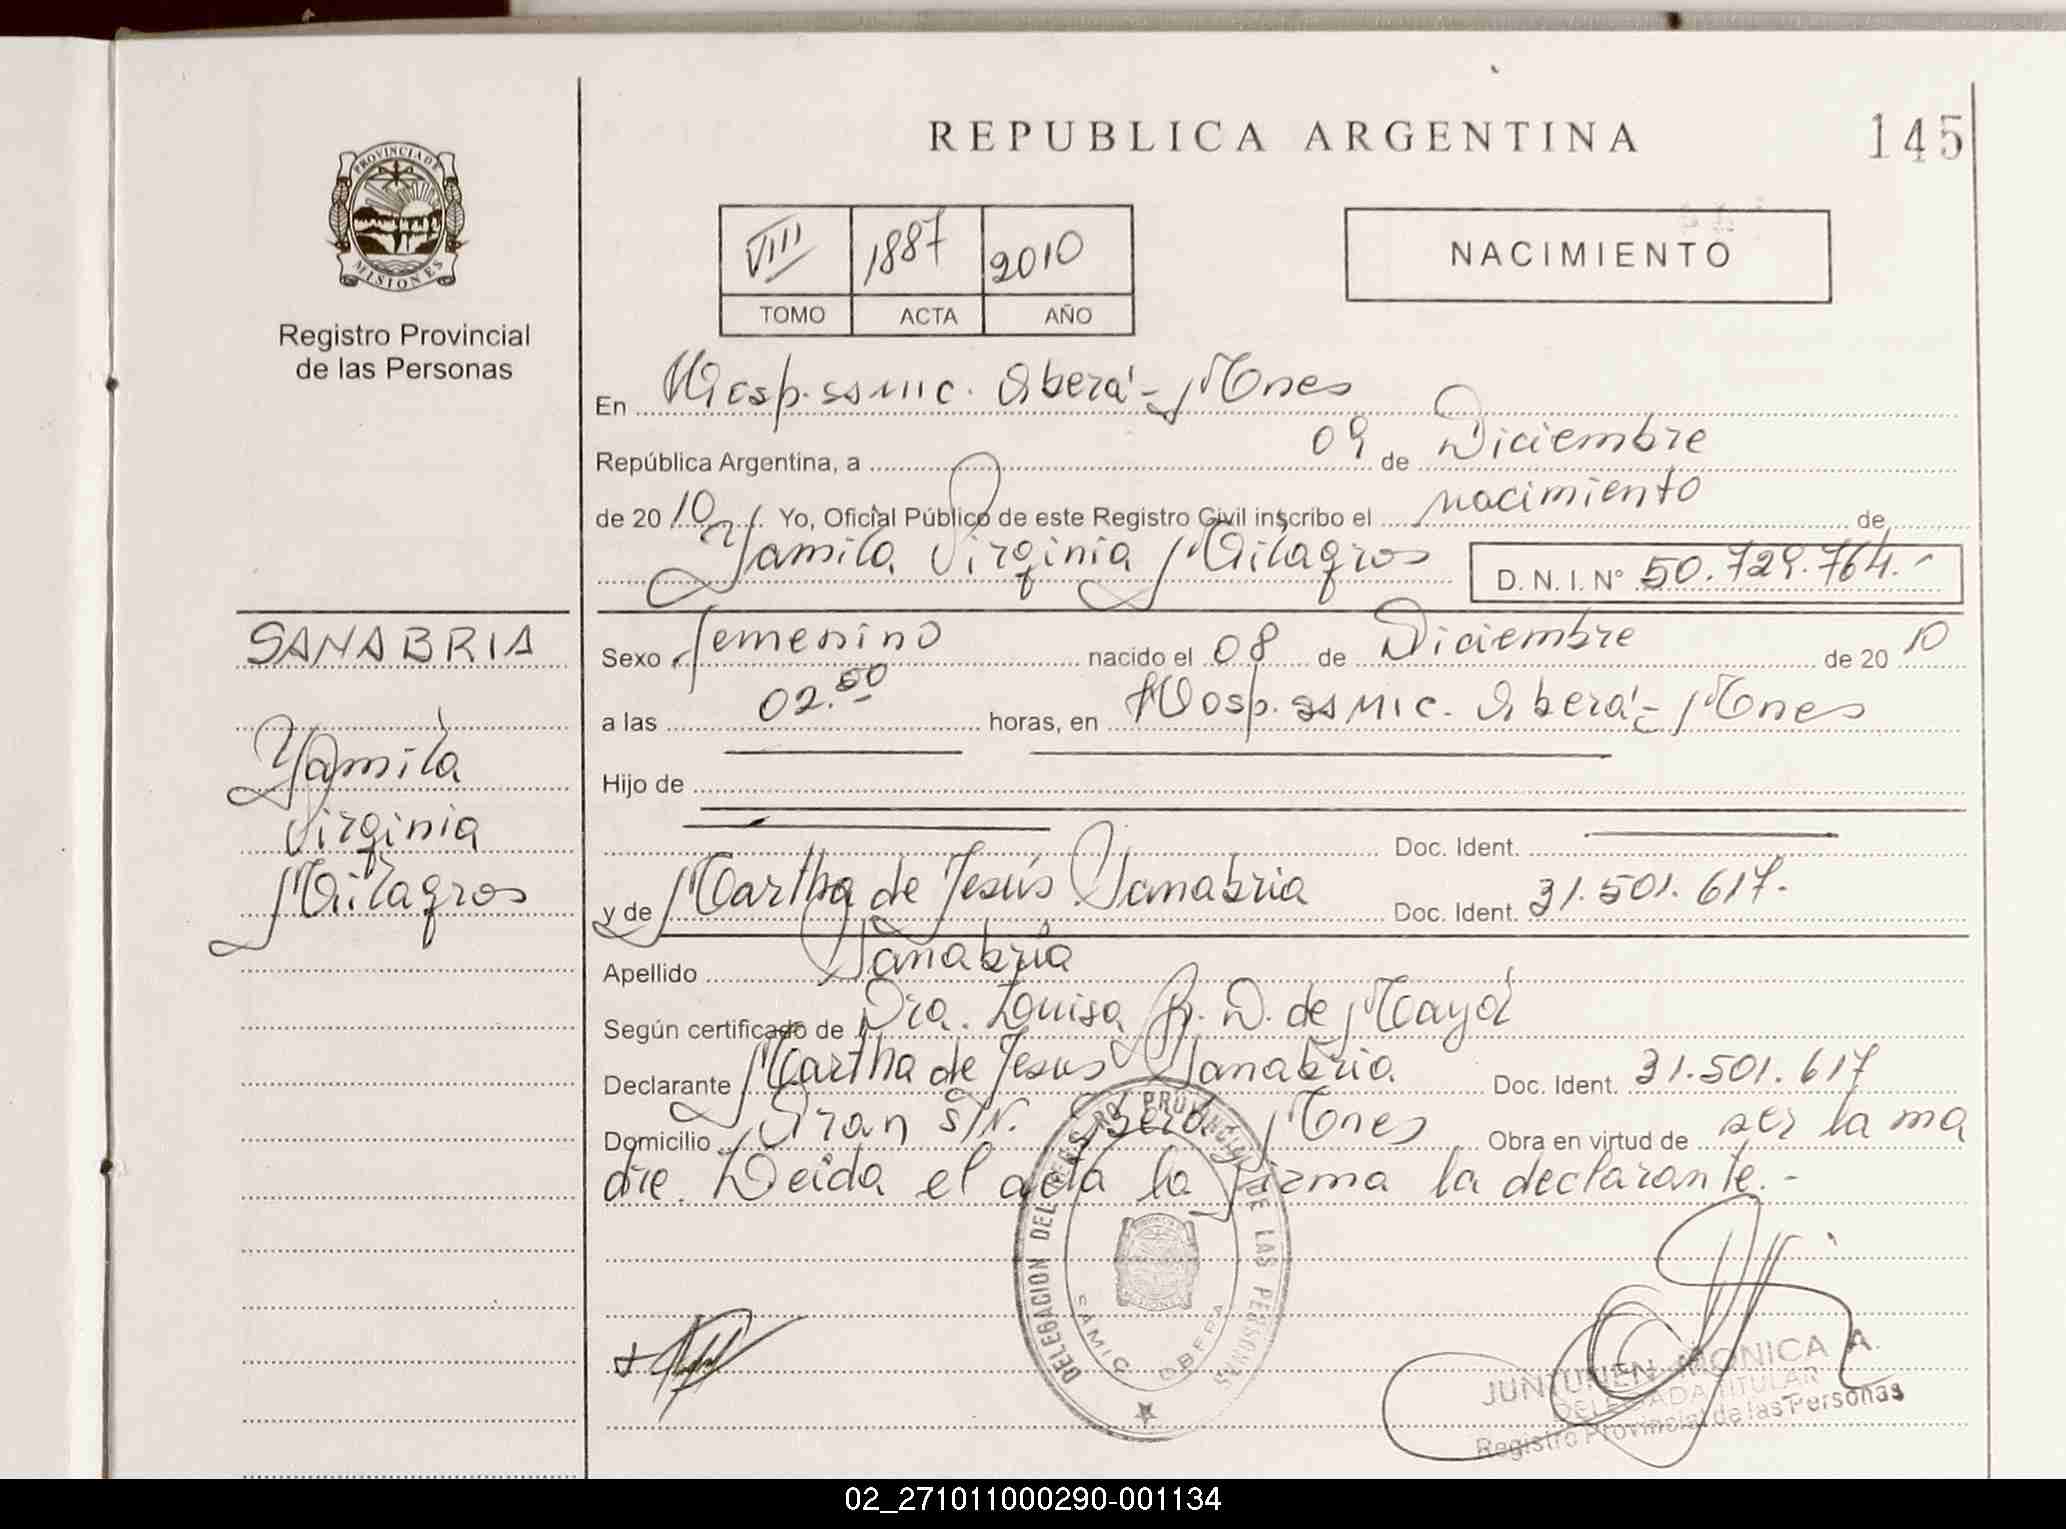 REPUBLICA ARGENTINA
145
PROVINCIA DE
MISIONES
Registro Provincial
de las Personas
VIII 1887 2010
TOMO ACTA AÑO
NACIMIENTO
En Hosp. SAMIC. Oberá - Mnes
República Argentina, a 09 de Diciembre
de 20 10 Yo, Oficial Público de este Registro Civil inscribo el nacimiento de
Yamila Virginia Milagros D. N. I. Nº 50.729.764.-
SANABRIA
Yamila
Virginia
Milagros
Sexo femenino nacido el 08 de Diciembre de 20 10
a las 02.50 horas, en Hosp. SAMIC. Oberá - Mnes
Hijo de
Doc. Ident.
y de Martha de Jesús Sanabria Doc. Ident. 31.501.617.
Apellido Sanabria
Según certificado de Dra. Luisa R. D. de Mayol
Declarante Martha de Jesus Sanabria Doc. Ident. 31.501.617
Domicilio S/N. Oberá Mnes Obra en virtud de ser la ma
dre. Leida el acta la firma la declarante.-
DELEGACION DEL REGISTRO PROVINCIAL DE LAS PERSONAS
SAMIC OBERA
JUNTUNEN MONICA A.
DELEGADA TITULAR
Registro Provincial de las Personas
02_271011000290-001134